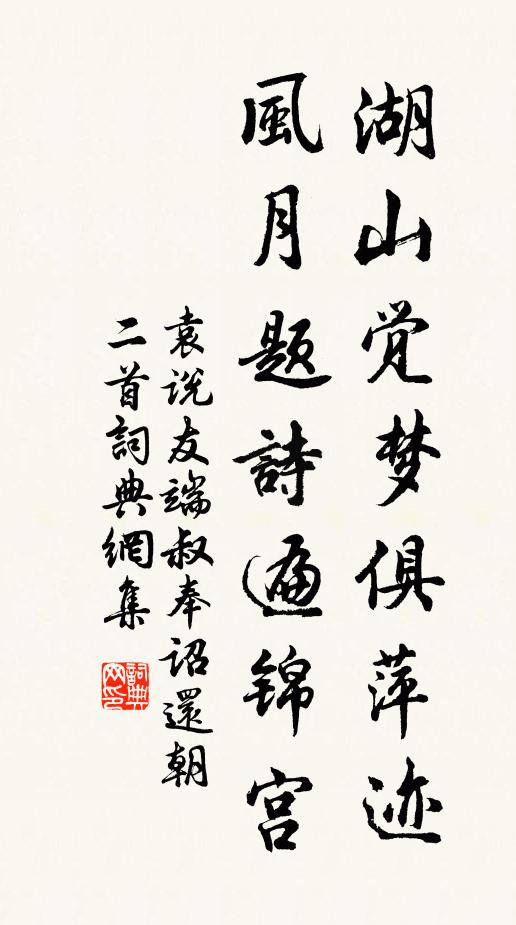 湖山觉梦俱萍迹
風月题詩遍锦宫
袁说友端叔奉诏還朝
二首詞典網集
詞典网印